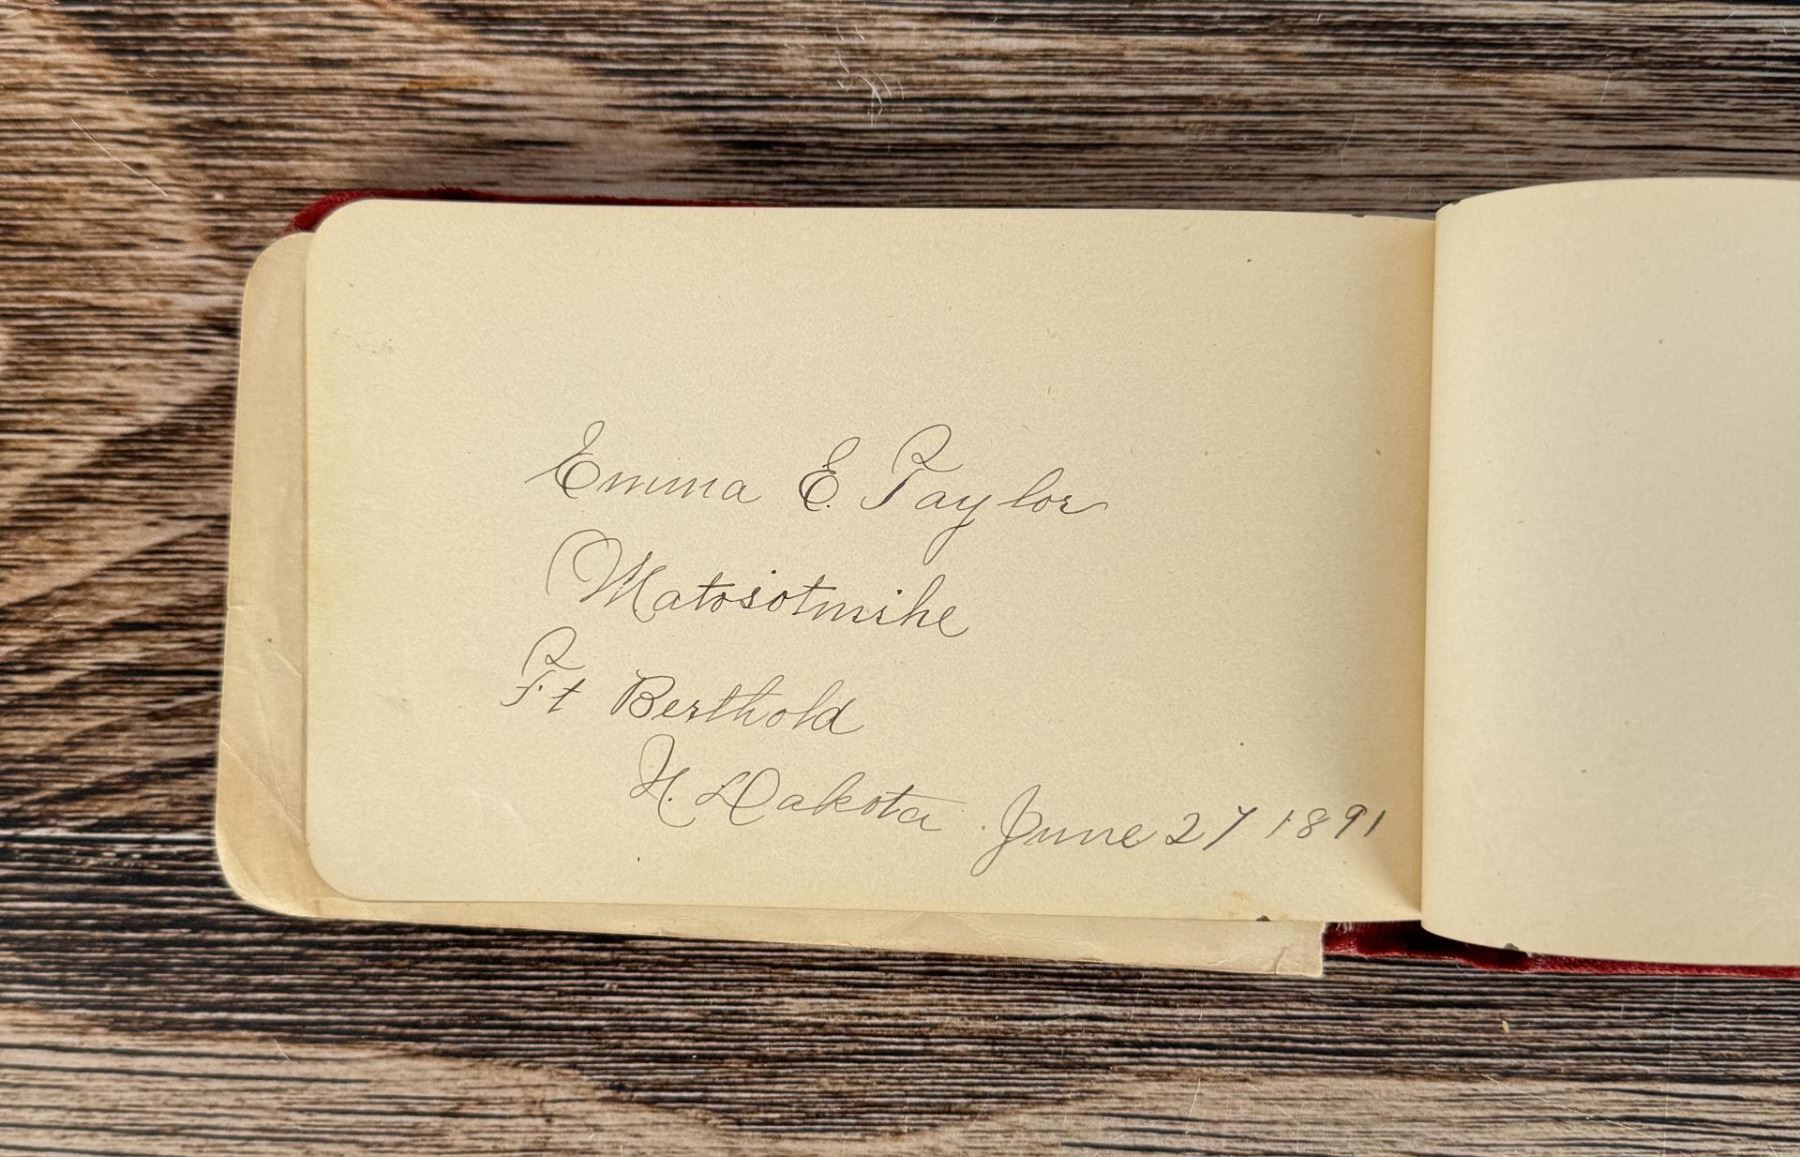 Emma E. Taylor
Matosotmihe
Ft Berthold
N. Dakota June 27 1891